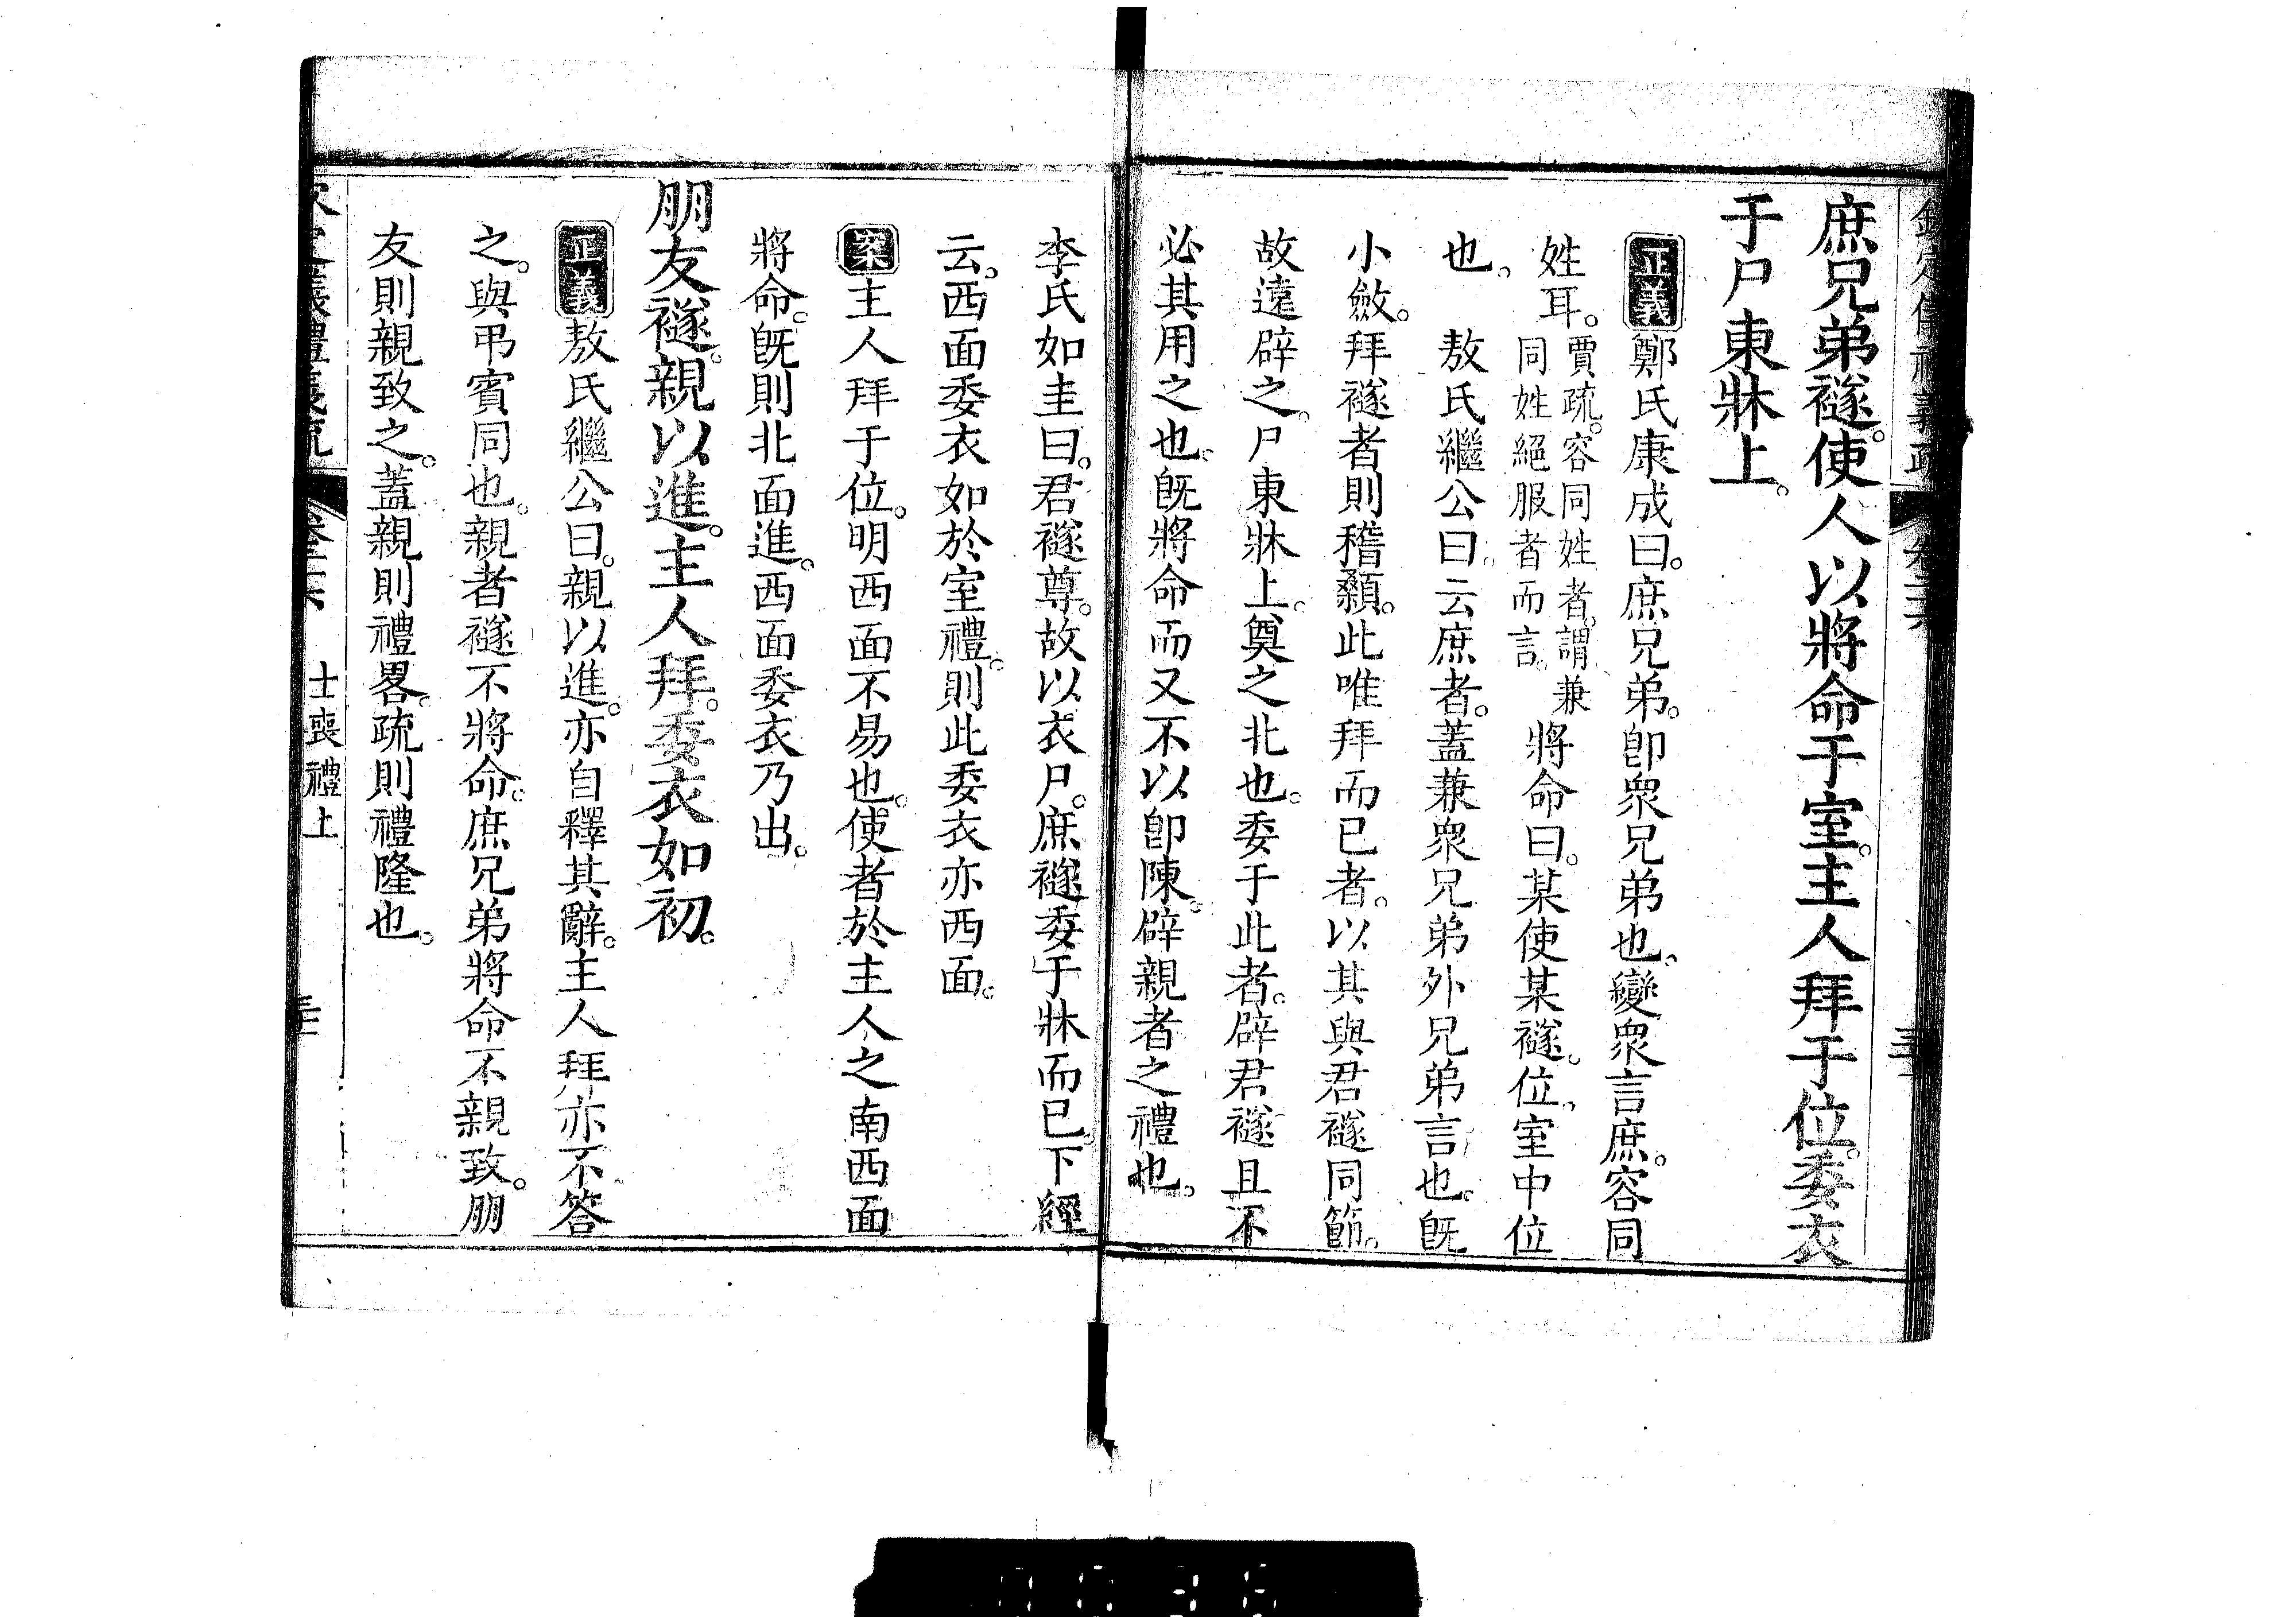 庶兄弟襚。使人以將命于室。主人拜于位。委衣
于尸東牀上。
正義鄭氏康成曰。庶兄弟。卽眾兄弟也。變眾言庶。容同
姓耳。賈疏。容同姓者。謂兼同姓絕服者而言。將命曰。某使某襚。位。室中位
也。　敖氏繼公曰。云庶者。蓋兼眾兄弟外兄弟言也。旣
小斂。拜襚者則稽顙。此唯拜而已者。以其與君襚同節。
故遠辟之。尸東牀上。奠之北也。委于此者。辟君襚且不
必其用之也。旣將命而又不以卽陳。辟親者之禮也。
李氏如圭曰。君襚尊。故以衣尸。庶襚委于牀而已。下經
云。西面委衣如於室禮。則此委衣亦西面。
案主人拜于位。明西面不易也。使者於主人之南西面
將命。旣則北面進。西面委衣乃出。
朋友襚。親以進。主人拜。委衣如初。
正義敖氏繼公曰。親以進。亦自釋其辭。主人拜亦不答
之。與弔賓同也。親者襚不將命。庶兄弟將命不親致。朋
友則親致之。蓋親則禮畧。疏則禮隆也。
士喪禮上